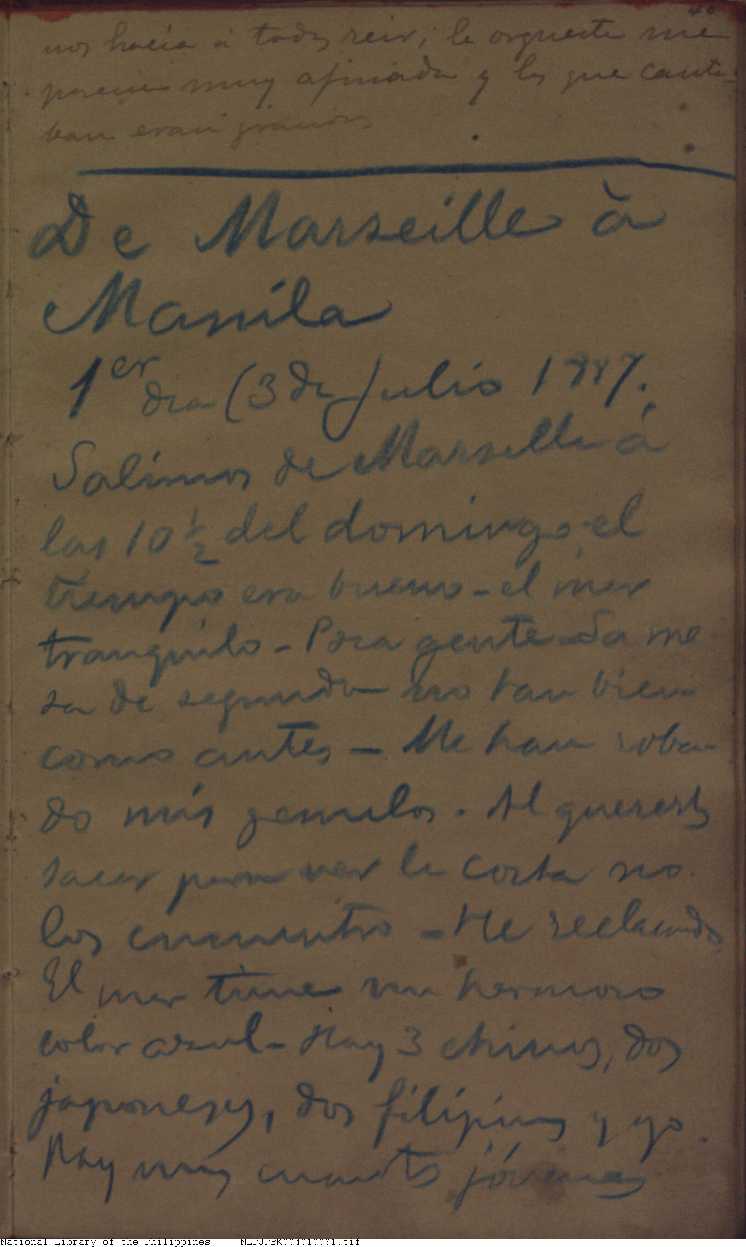 40
nos hacía á todos reir; la orquesta me
parecía muy afinada y los que canta-
ban eran
De Marseille à
Manila
1er dia (3 de Julio 1887.
Salimos de Marseille á
las 10 ½ del domingo - el
tiempo era bueno - el mar
tranquilo - Poca gente - La me
sa de segunda no tan bien
como antes - Me han roba-
do mis gemelos. Al quererlos
sacar para ver la costa no
los encuentro - He reclamado
El mar tiene un hermoso
color azul - Hay 3 chinos, dos
japoneses, dos filipinos y yo.
Hay unos cuantos jóvenes
National Library of the Philippines